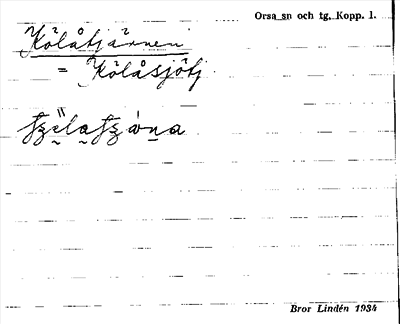 Orsa sn och tg. Kopp. l.
Kölåtjärnen
= Kölåsjötj
Bror Lindén 1934